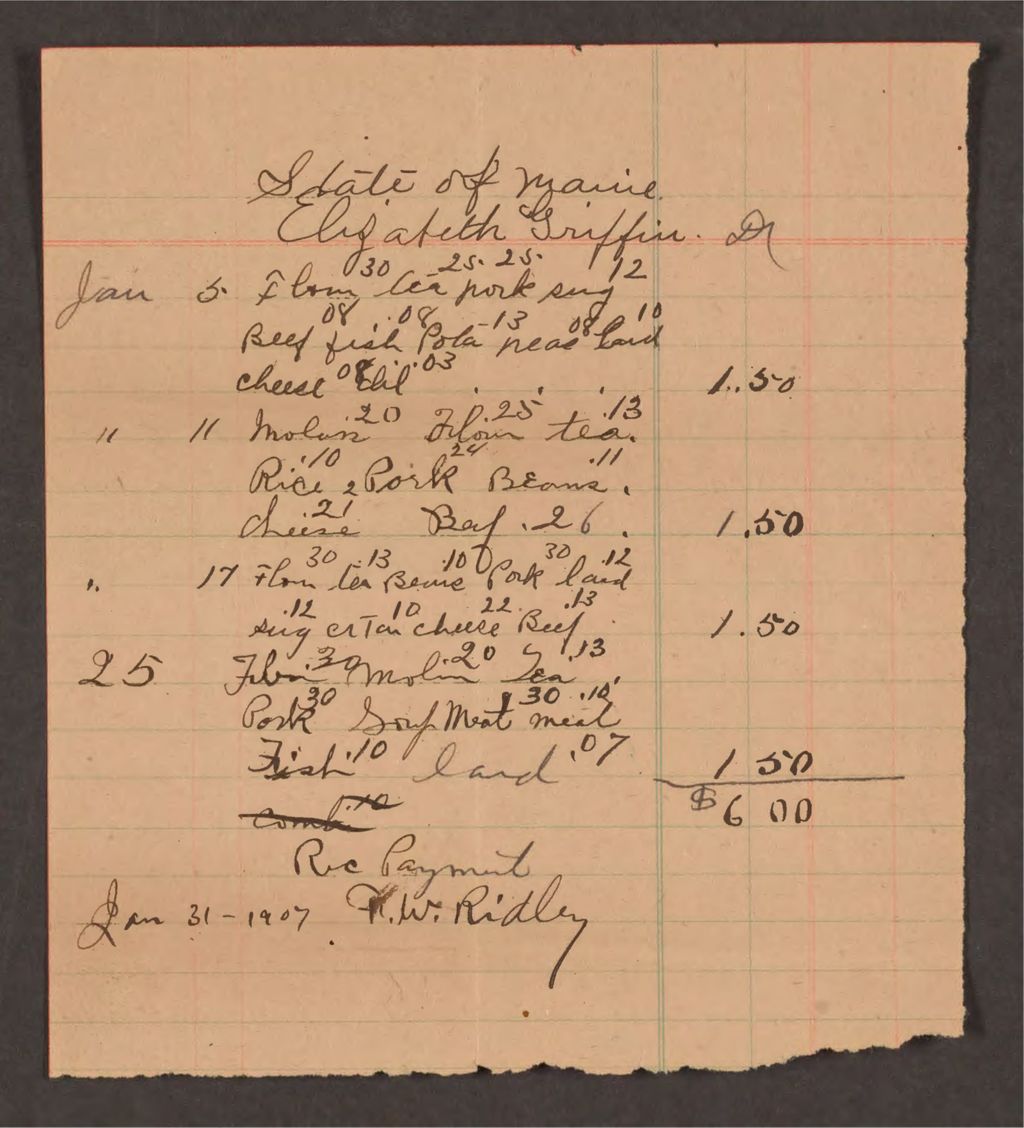 State of Maine
Elizabeth Griffin. Dr
Jan 5 Flour 30 tea 25. pork 25. sug 12
Beef 08 fish .08 Pota -13 peas 08 lard 10
cheese 08 Oil .03 . . . 1.50
" 11 Molass .20 Flour .25 tea .13
Rice .10 2 Pork 24 Beans .11
cheese .21 Beef .26 . 1.50
" 17 Flour 30 tea .13 Beans .10 Pork 30 lard .12
sug .12 10 cheese 22 Beef .13 1.50
25 Flour .30 Molass .20 Tea .13
Pork 30 Soup Meat .30 meal .10
Fish .10 lard .07 1 50
comb .10 $6 00
Rec Payment
Jan 31-1907 F.W. Ridley